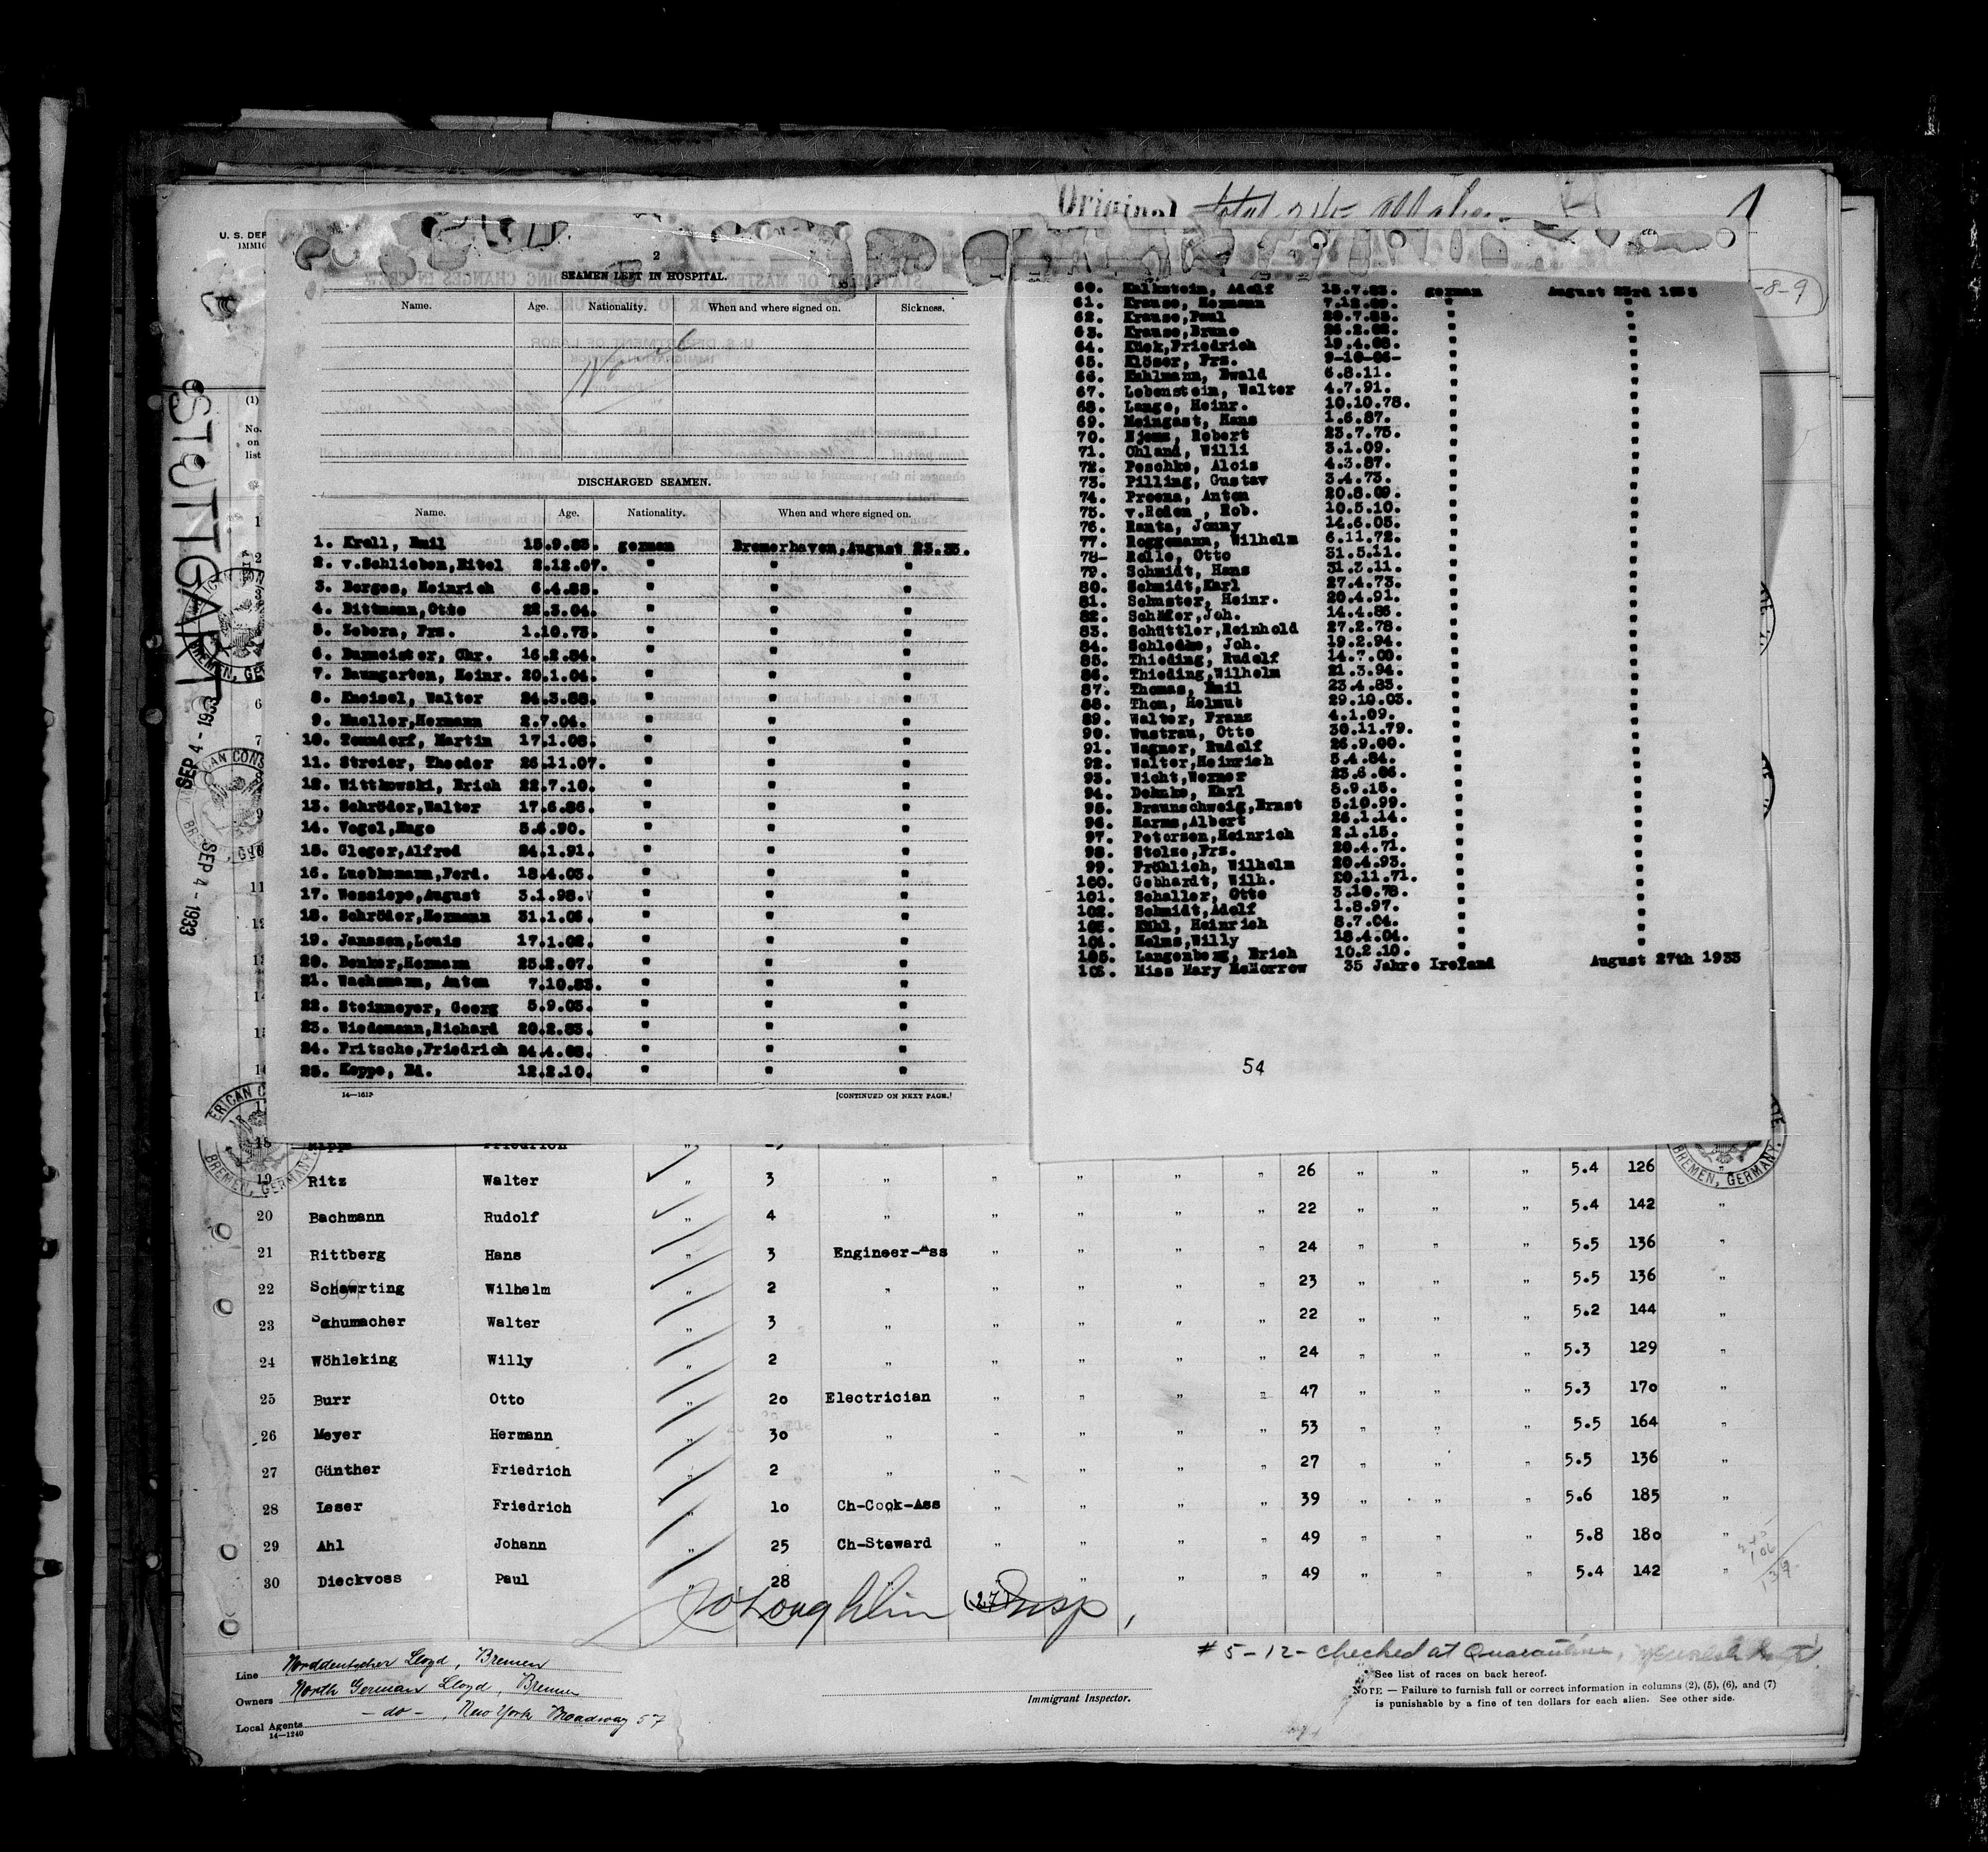 Original
U. S. DEP
IMMIG
2
SEAMEN LEFT IN HOSPITAL.
Name. Age. Nationality. When and where signed on. Sickness.
DISCHARGED SEAMEN.
Name. Age. Nationality. When and where signed on.
1. Krell, Emil 15.9.83. german Bremerhaven, August 23.33.
2. v.Schlieben,Eitel 2.12.07. " " "
3. Borges, Heinrich 6.4.88. " " "
4. Dittmann,Otto 22.3.04. " " "
5. Zebera, Frz. 1.10.73. " " "
6. Baumeister, Chr. 16.2.84. " " "
7. Baumgarten, Heinr. 20.1.04. " " "
8. Kneisel, Walter 24.3.88. " " "
9. Mueller,Hermann 2.7.04. " " "
10. Tonndorf, Martin 17.1.08. " " "
11. Streier, Theodor 26.11.07. " " "
12. Wittkowski, Erich 22.7.10. " " "
13. Schröder,Walter 17.6.86. " " "
14. Vogel,Hugo 90. " " "
15. Gleger,Alfred 24.1.91. " " "
16. Ferd. 18.4.03. " " "
17. August 3.1.98. " " "
18. Schröder,Hermann 31.1.06. " " "
19. Janssen,Louis 17.1.02. " " "
20. Denker,Hermann 25.2.07. " " "
21. Wachsmann, Anton 7.10.83. " " "
22. Steinmeyer, Georg 5.9.03. " " "
23. Wiedemann,Richard 20.2.83. " " "
24. Fritsche,Friedrich 24.4.08. " " "
25. Koppe, Ed. 12.2.10. " " "
14—1613 [CONTINUED ON NEXT PAGE.]
60. Kalkstein, Adolf 15.7.83. german August 23rd 1933
61. Krause, Hermann 7.12.09. " "
62. Krause,Paul 20.7.85. " "
63. Krause,Bruno 26.2.08. " "
64. Kück,Friedrich 19.4.08. " "
65. Klöser, Frz. 9-10-06- " "
66. Kahlmann, Ewald 6.8.11. " "
67. Lebenstein, Walter 4.7.91. " "
68. Lange, Heinr. 10.10.78. " "
69. Meingast, Hans 1.6.87. " "
70. Robert 23.7.75. " "
71. Ohland, Willi 3.1.09. " "
72. Peschke, Alois 4.3.87. " "
73. Pilling, Gustav 3.4.73. " "
74. Anton 20.8.09. " "
75. v.Roden , Rob. 10.5.10. " "
76. Ranta, Jonny 14.6.05. " "
77. Roggemann, Wilhelm 6.11.72. " "
78- Rolle, Otto 31.5.11. " "
79. Schmidt, Hans 31.3.11. " "
80. Schmidt,Karl 27.4.73. " "
81. Schuster, Heinr. 20.4.91. " "
82. Schäfer,Joh. 14.4.86. " "
83. Schüttler,Reinhold 27.2.78. " "
84. Joh. 19.2.94. " "
85. Thieding, Rudolf 14.7.00. " "
86. Thieding,Wilhelm 21.3.94. " "
87. Thomas, Emil 23.4.83. " "
88. Thom, Helmut 29.10.03. " "
89. Walter, Franz 4.1.09. " "
90. Wustrau, Otto 30.11.79. " "
91. Wagner, Rudolf 26.9.00. " "
92. Walter,Heinrich 3.4.84. " "
93. Wicht,Werner 23.6.06. " "
94. Dehnke, Karl 5.9.15. " "
95. Braunschweig,Ernst 5.10.99. " "
96. Harms,Albert 26.1.14. " "
97. Petersen,Heinrich 2.1.15. " "
98. Stolze,Frz. 20.4.71. " "
99. Fröhlich, Wilhelm 20.4.93. " "
100. Gebhardt, Wilh. 20.11.71. " "
101. Schaller, Otto 3.10.78. " "
102. Schmidt,Adolf 1.8.97. " "
103. Kühl, Heinrich 8.7.04. " "
104. Helms,Willy 18.4.04. " "
105. Langenberg, Erich 10.2.10. " "
106. Miss Mary McMorrow 35 Jahre Ireland August 27th 1933
54
(1)
No.
on
list
STUTTGART
SEP 4 - 1933
SEP 4 - 1933
19 Ritz Walter " 3 " " " " " 26 " " " 5.4 126 "
20 Bachmann Rudolf " 4 " " " " " 22 " " " 5.4 142 "
21 Rittberg Hans " 3 Engineer-Ass " " " " 24 " " " 5.5 136 "
22 Schawrting Wilhelm " 2 " " " " " 23 " " " 5.5 136 "
23 Schumacher Walter " 3 " " " " " 22 " " " 5.2 144 "
24 Wöhleking Willy " 2 " " " " " 24 " " " 5.3 129 "
25 Burr Otto " 20 Electrician " " " " 47 " " " 5.3 170 "
26 Meyer Hermann " 30 " " " " " 53 " " " 5.5 164 "
27 Günther Friedrich " 2 " " " " " 27 " " " 5.5 136 "
28 Leser Friedrich " 10 Ch-Cook-Ass " " " " 39 " " " 5.6 185 "
29 Ahl Johann " 25 Ch-Steward " " " " 49 " " " 5.8 180 "
30 Dieckvoss Paul " 28 " " " " " 49 " " " 5.4 142 "
O'Loughlin Insp,
BREMEN, GERMANY.
#5-12- checked at Quarantine,
Line Norddeutscher Lloyd, Bremen
Owners North German Lloyd, Bremen
Local Agents - do - , New York Broadway 57
14—1240
Immigrant Inspector.
* See list of races on back hereof.
NOTE — Failure to furnish full or correct information in columns (2), (5), (6), and (7)
is punishable by a fine of ten dollars for each alien. See other side.